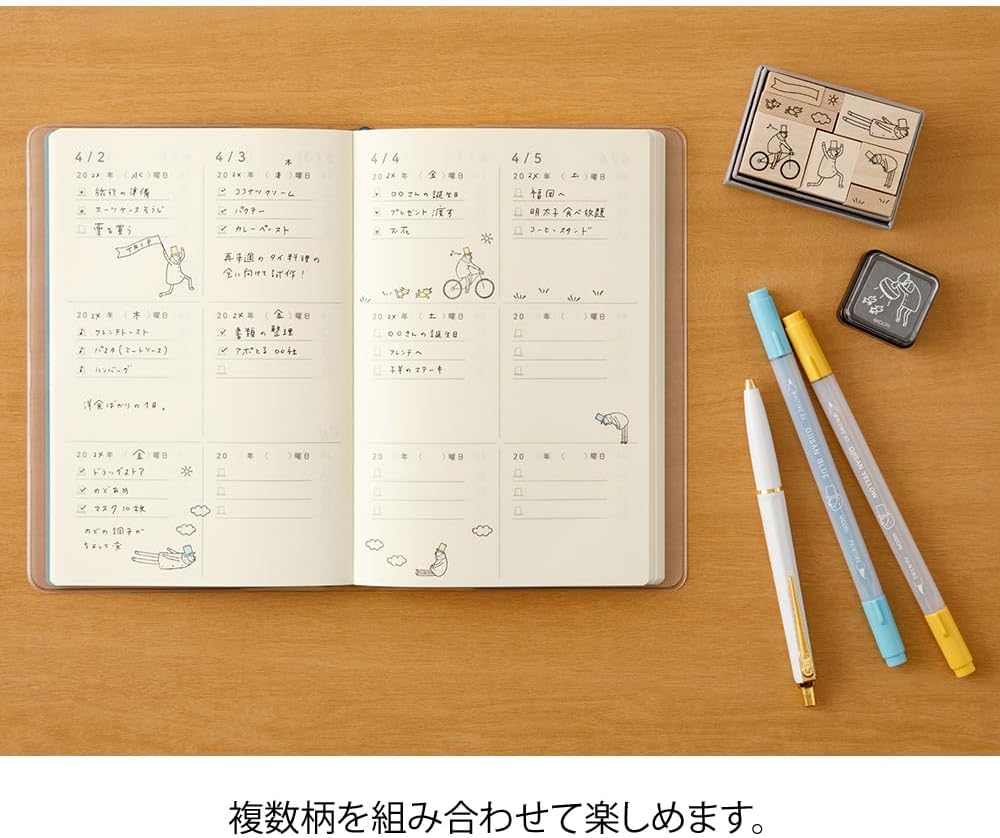 4/2
20 2X 年 (水) 曜日
旅行の準備
スーツケースそうじ
薬を買う
TRIP
20 2X 年 (木) 曜日
フレンチトースト
パスタ(ミートソース)
ハンバーグ
洋食ばかりの1日。
20 2X 年 (金) 曜日
ドラッグストア
のどあめ
マスク10枚
のどの調子が
ちょっと変
4/3
木
20 2X 年 (木) 曜日
ココナツクリーム
パクチー
カレーペースト
再来週のタイ料理の
会に向けて試作!
20 2X 年 (金) 曜日
書類の整理
アポとる 〇〇社
20 年 ( ) 曜日
4/4
20 2X 年 (金) 曜日
〇〇さんの誕生日
プレゼント渡す
お花
20 2X 年 (土) 曜日
〇〇さんの誕生日
フレンチへ
子羊のステーキ
20 年 ( ) 曜日
4/5
20 2X 年 (土) 曜日
福岡へ
明太子食べ放題
コーヒースタンド
20 年 ( ) 曜日
20 年 ( ) 曜日
MIDORI
OJISAN BLUE
MIDORI
OJISAN YELLOW
MIDORI
複数柄を組み合わせて楽しめます。